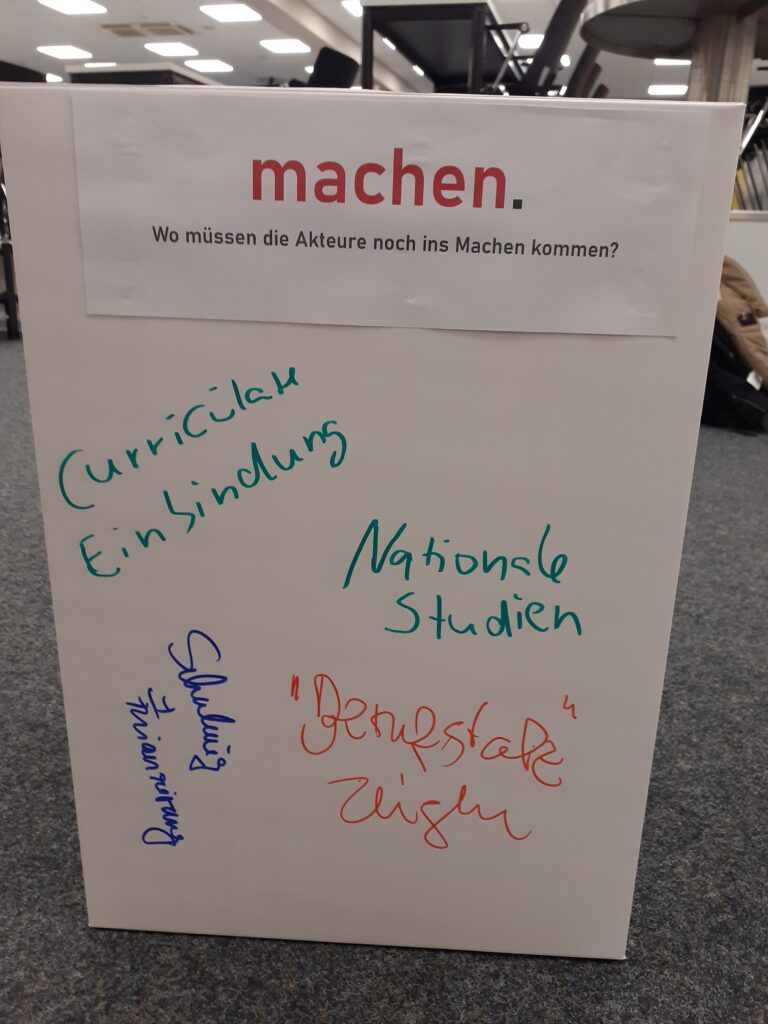 machen.
Wo müssen die Akteure noch ins Machen kommen?
Curriculare
Einbindung
Nationale
Studien
Schulung
+
Finanzierung
"Berufstolz"
zeigen